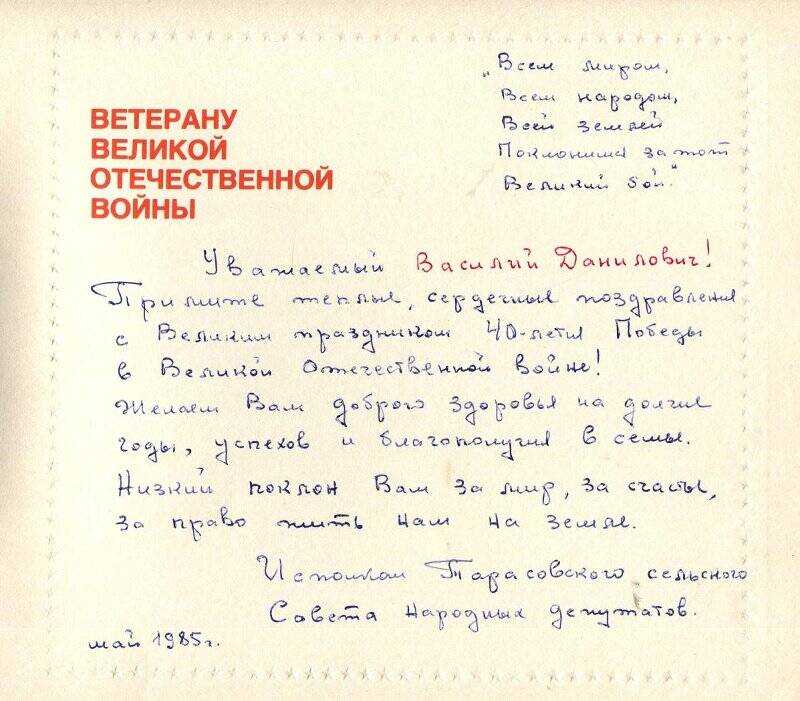 „Всем миром,
Всем народом,
Всей землёй
Поклонимся за тот
Великий бой."
ВЕТЕРАНУ
ВЕЛИКОЙ
ОТЕЧЕСТВЕННОЙ
ВОЙНЫ
Уважаемый Василий Данилович!
Примите теплые, сердечные поздравления
с Великим праздником 40-летия Победы
в Великой Отечественной войне!
Желаем Вам доброго здоровья на долгие
годы, успехов и благополучия в семье.
Низкий поклон Вам за мир, за счастье,
за право жить нам на земле.
Исполком Тарасовского сельского
Совета народных депутатов.
май 1985г.